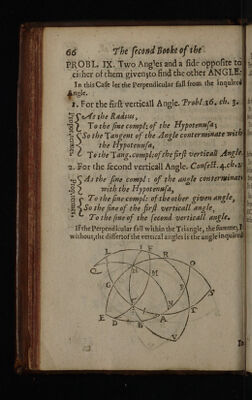 66 The second Booke of the
PROBL. IX. Two Angles and a side opposite to
either of them given; to find the other ANGLE.
In this Case let the Perpendicular fall from the inquired
Angle.
1. For the first verticall Angle. Probl. 16. ch. 3.
As the Radius,
To the sine compl: of the Hypotenusa;
So the Tangent of the Angle conterminate with
the Hypotenusa,
To the Tang. complec: of the first verticall Angle.
2. For the second verticall Angle. Consect. 4. ch. 2.
As the sine compl: of the angle conterminate
with the Hypotenusa,
To the sine compl: of the other given angle,
So the sine of the first verticall angle,
To the sine of the second verticall angle.
If the Perpendicular fall within the Triangle, the summe, if
without, the differ: of the vertical angles is the angle inquired